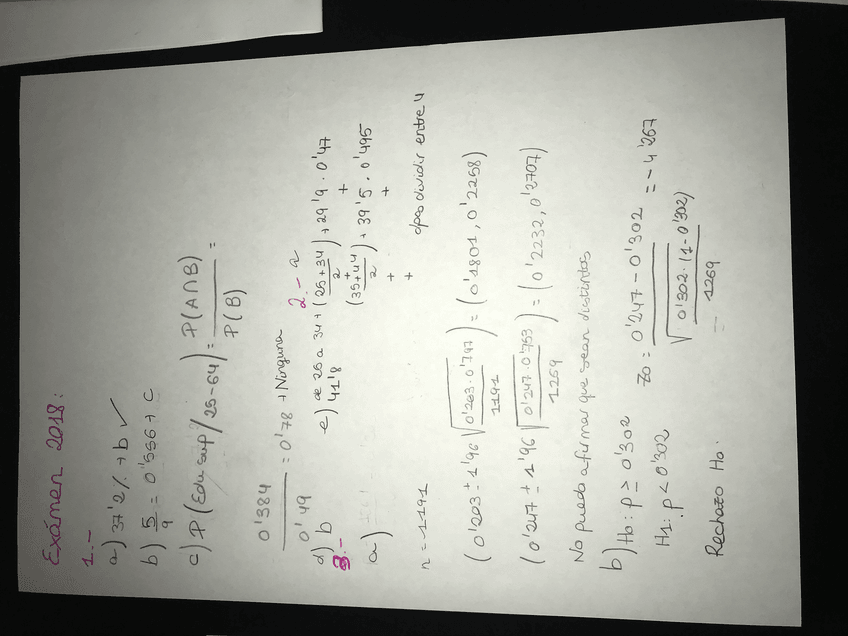 Exámen 2018:
1.-
a) 37'2% + b ✓
b) 5/9 = 0'556 + c
c) P(Edu sup / 25-64) = P(A∩B) / P(B) =
0'384 / 0'49 = 0'78 + Ninguna
d) b
e) de 25 a 34 + (25+34 / 2) + 29'9 · 0'47
41'8 + +
(35+44 / 2) + 39'5 · 0'495
+ +
+
dividir entre 4
2.- a
3.-
a)
n = 1191
(0'203 ± 1'96 √(0'203·0'797 / 1191)) = (0'1801, 0'2258)
(0'247 ± 1'96 √(0'247·0'753 / 1269)) = (0'2232, 0'2707)
No puedo afirmar que sean distintas
b) H0: p ≥ 0'302
H1: p < 0'302
Z0 = 0'247 - 0'302 / √(0'302·(1-0'302) / 1269) = -4'267
Rechazo H0.